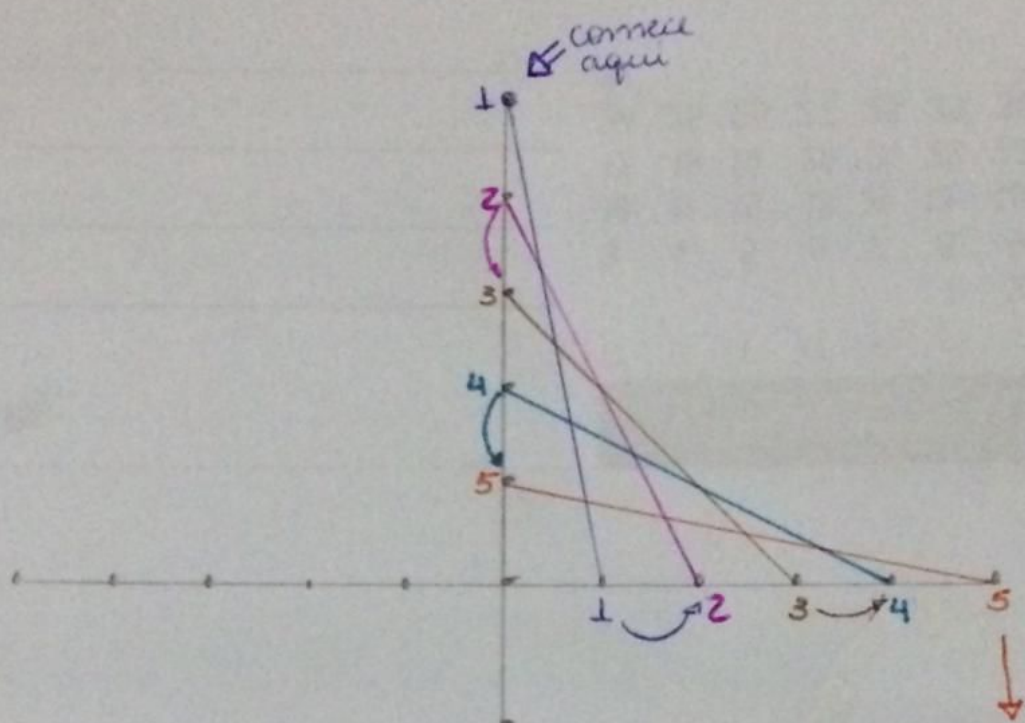 comece
aqui
1
2
3
4
5
1 2 3 4 5